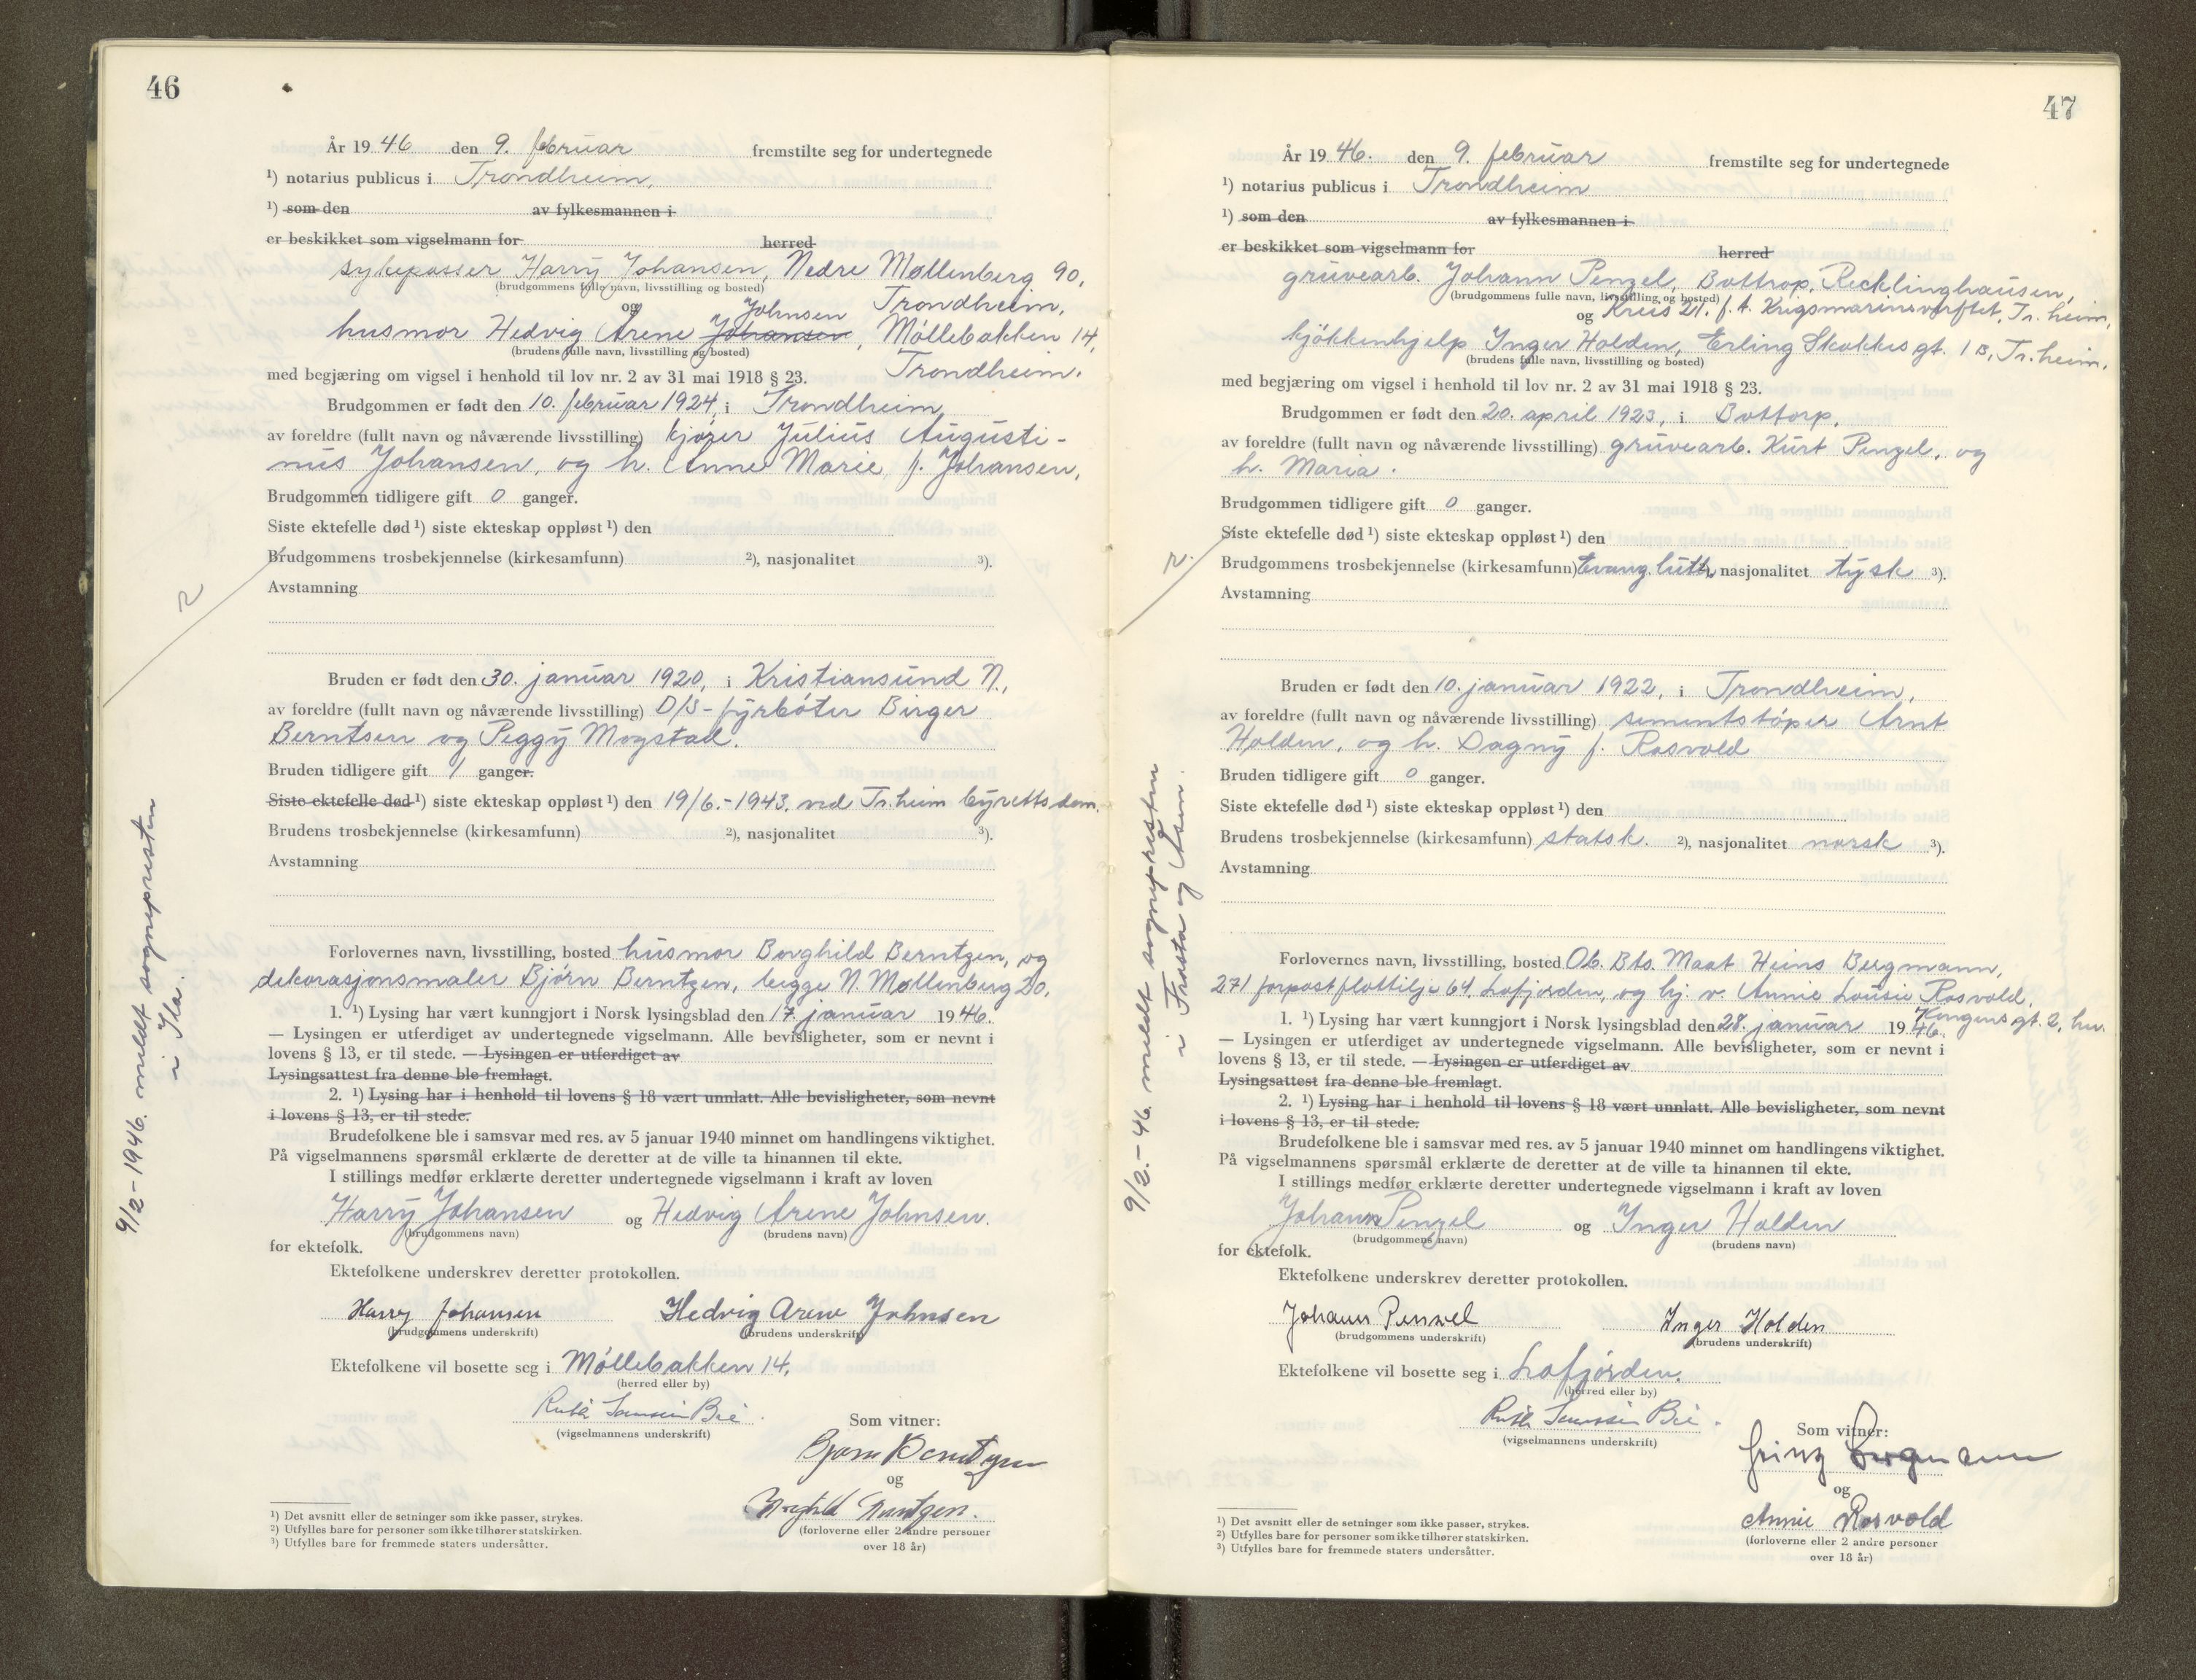 46
År 19 46 den 9. februar fremstilte seg for undertegnede
¹) notarius publicus i Trondheim,
¹) som den av fylkesmannen i
er beskikket som vigselmann for herred
sykepasser Harry Johansen, Nedre Møllenberg 90,
(brudgommens fulle navn, livsstilling og bosted)
Trondheim,
og Johnsen
husmor Hedvig Arene Johansen, Møllebakken 14,
(brudens fulle navn, livsstilling og bosted)
Trondheim.
med begjæring om vigsel i henhold til lov nr. 2 av 31 mai 1918 § 23.
Brudgommen er født den 10. februar 1924, i Trondheim,
av foreldre (fullt navn og nåværende livsstilling) kjører Julius Augusti-
nus Johansen, og h. Anne Marie, f. Johansen,
Brudgommen tidligere gift 0 ganger.
Siste ektefelle død ¹) siste ekteskap oppløst ¹) den
Brudgommens trosbekjennelse (kirkesamfunn) ²), nasjonalitet ³).
Avstamning
Bruden er født den 30. januar 1920, i Kristiansund N.,
av foreldre (fullt navn og nåværende livsstilling) D/S-fyrbøter Birger
Berntsen og Peggy Mogstad.
Bruden tidligere gift 1 ganger.
Siste ektefelle død ¹) siste ekteskap oppløst ¹) den 19/6.-1943. ved Tr.heim byrettsdom.
Brudens trosbekjennelse (kirkesamfunn) ²), nasjonalitet ³).
Avstamning
Forlovernes navn, livsstilling, bosted husmor Borghild Berntzen, og
dekorasjonsmaler Bjørn Berntzen, begge N. Møllenberg 20.
1. ¹) Lysing har vært kunngjort i Norsk lysingsblad den 17. januar 1946.
— Lysingen er utferdiget av undertegnede vigselmann. Alle bevisligheter, som er nevnt i
lovens § 13, er til stede. — Lysingen er utferdiget av
Lysingsattest fra denne ble fremlagt.
2. ¹) Lysing har i henhold til lovens § 18 vært unnlatt. Alle bevisligheter, som nevnt
i lovens § 13, er til stede.
Brudefolkene ble i samsvar med res. av 5 januar 1940 minnet om handlingens viktighet.
På vigselmannens spørsmål erklærte de deretter at de ville ta hinannen til ekte.
I stillings medfør erklærte deretter undertegnede vigselmann i kraft av loven
Harry Johansen og Hedvig Arene Johnsen.
(brudgommens navn) (brudens navn)
for ektefolk.
Ektefolkene underskrev deretter protokollen.
Harry Johansen Hedvig Arene Johnsen
(brudgommens underskrift) (brudens underskrift)
Ektefolkene vil bosette seg i Møllebakken 14,
(herred eller by)
(vigselmannens underskrift)
Som vitner:
Bjørn Berntzen
og
Borghild Berntzen.
(forloverne eller 2 andre personer
over 18 år)
¹) Det avsnitt eller de setninger som ikke passer, strykes.
²) Utfylles bare for personer som ikke tilhører statskirken.
³) Utfylles bare for fremmede staters undersåtter.
2
9/2-1946. meldt sognepresten
i Ila.
47
År 19 46. den 9. februar fremstilte seg for undertegnede
¹) notarius publicus i Trondheim
¹) som den av fylkesmannen i
er beskikket som vigselmann for herred
gruvearb. Johann Penzel, Bottrop, Recklinghausen,
(brudgommens fulle navn, livsstilling og bosted)
og Kreis 21. f.t. Krigsmarineverftet, Tr.heim,
kjøkkenhjelp Inger Holden, Erling Skakkes gt. 1 B, Tr.heim.
(brudens fulle navn, livsstilling og bosted)
med begjæring om vigsel i henhold til lov nr. 2 av 31 mai 1918 § 23.
Brudgommen er født den 20. april 1923, i Bottorp.
av foreldre (fullt navn og nåværende livsstilling) gruvearb. Kurt Penzel, og
h. Maria.
Brudgommen tidligere gift 0 ganger.
Siste ektefelle død ¹) siste ekteskap oppløst ¹) den
Brudgommens trosbekjennelse (kirkesamfunn) Evang. luth., nasjonalitet tysk ³).
Avstamning
Bruden er født den 10. januar 1922, i Trondheim,
av foreldre (fullt navn og nåværende livsstilling) sementstøper Arnt
Holden, og h. Dagny f. Rosvold
Bruden tidligere gift 0 ganger.
Siste ektefelle død ¹) siste ekteskap oppløst ¹) den
Brudens trosbekjennelse (kirkesamfunn) statsk. ²), nasjonalitet norsk ³).
Avstamning
Forlovernes navn, livsstilling, bosted Ob. Bts. Maat Heins Bergmann,
271 forpostflottilje 64, Lofjorden, og hj. v. Annie Louise Rosvold,
Kongens gt. 2, her.
1. ¹) Lysing har vært kunngjort i Norsk lysingsblad den 28. januar 19 46.
— Lysingen er utferdiget av undertegnede vigselmann. Alle bevisligheter, som er nevnt i
lovens § 13, er til stede. — Lysingen er utferdiget av
Lysingsattest fra denne ble fremlagt.
2. ¹) Lysing har i henhold til lovens § 18 vært unnlatt. Alle bevisligheter, som nevnt
i lovens § 13, er til stede.
Brudefolkene ble i samsvar med res. av 5 januar 1940 minnet om handlingens viktighet.
På vigselmannens spørsmål erklærte de deretter at de ville ta hinannen til ekte.
I stillings medfør erklærte deretter undertegnede vigselmann i kraft av loven
Johann Penzel og Inger Holden
(brudgommens navn) (brudens navn)
for ektefolk.
Ektefolkene underskrev deretter protokollen.
Johann Penzel Inger Holden
(brudgommens underskrift) (brudens underskrift)
Ektefolkene vil bosette seg i Lofjorden.
(herred eller by)
(vigselmannens underskrift)
Som vitner:
Bergmann
og
Annie Rosvold
(forloverne eller 2 andre personer
over 18 år)
¹) Det avsnitt eller de setninger som ikke passer, strykes.
²) Utfylles bare for personer som ikke tilhører statskirken.
³) Utfylles bare for fremmede staters undersåtter.
9/2.-46. meldt sognepresten
i Frosta og Åsen.